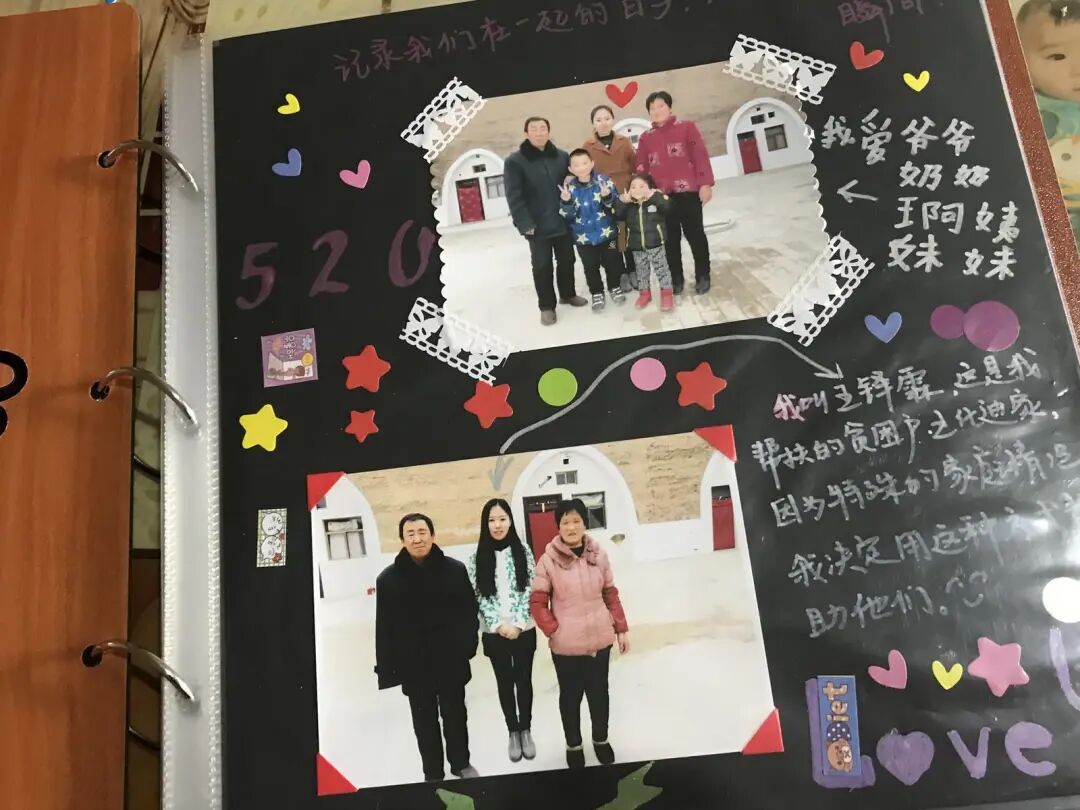 记录我们在一起的日子..
瞬间!
我爱爷爷
奶奶
王阿姨
妹妹
520
我叫王锌霖,这是我
帮扶的贫困户
家,
因为特殊的家庭情况
我决定用这种方式
助他们。
Diet
Love